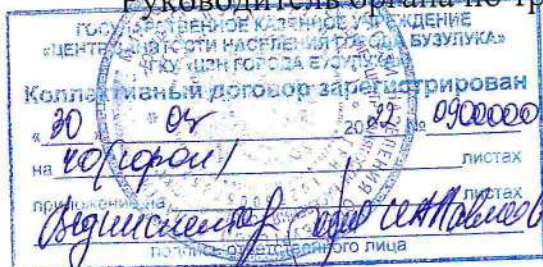 Руководитель органа по тр
ГОСУДАРСТВЕННОЕ КАЗЕННОЕ УЧРЕЖДЕНИЕ
«ЦЕНТР ЗАНЯТОСТИ НАСЕЛЕНИЯ ГОРОДА БУЗУЛУКА»
ГКУ «ЦЗН ГОРОДА БУЗУЛУКА»
Коллективный договор зарегистрирован
«30» 2022 № 0900000
на 40 (сорок) листах
приложение на листах
подпись ответственного лица